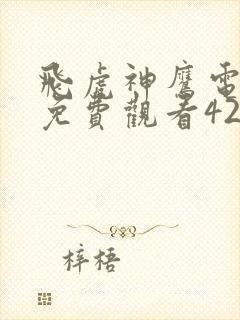 飛虎神鷹電
免費觀看42
梓梧